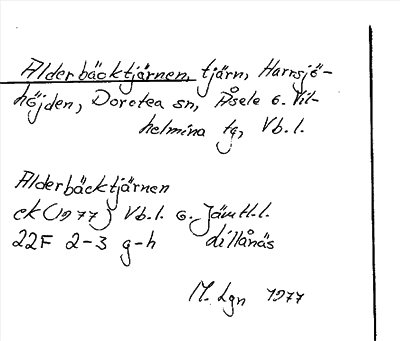 Alderbäcktjärnen, tjärn, Harrsjö-
höjden, Dorotea sn, Åsele o. Vil-
helmina tg, Vb.l.
Alderbäcktjärnen
ek (1977) Vb.l. o. Jämtl.l.
22F 2-3 g-h dillånäs
M. Lgn 1977